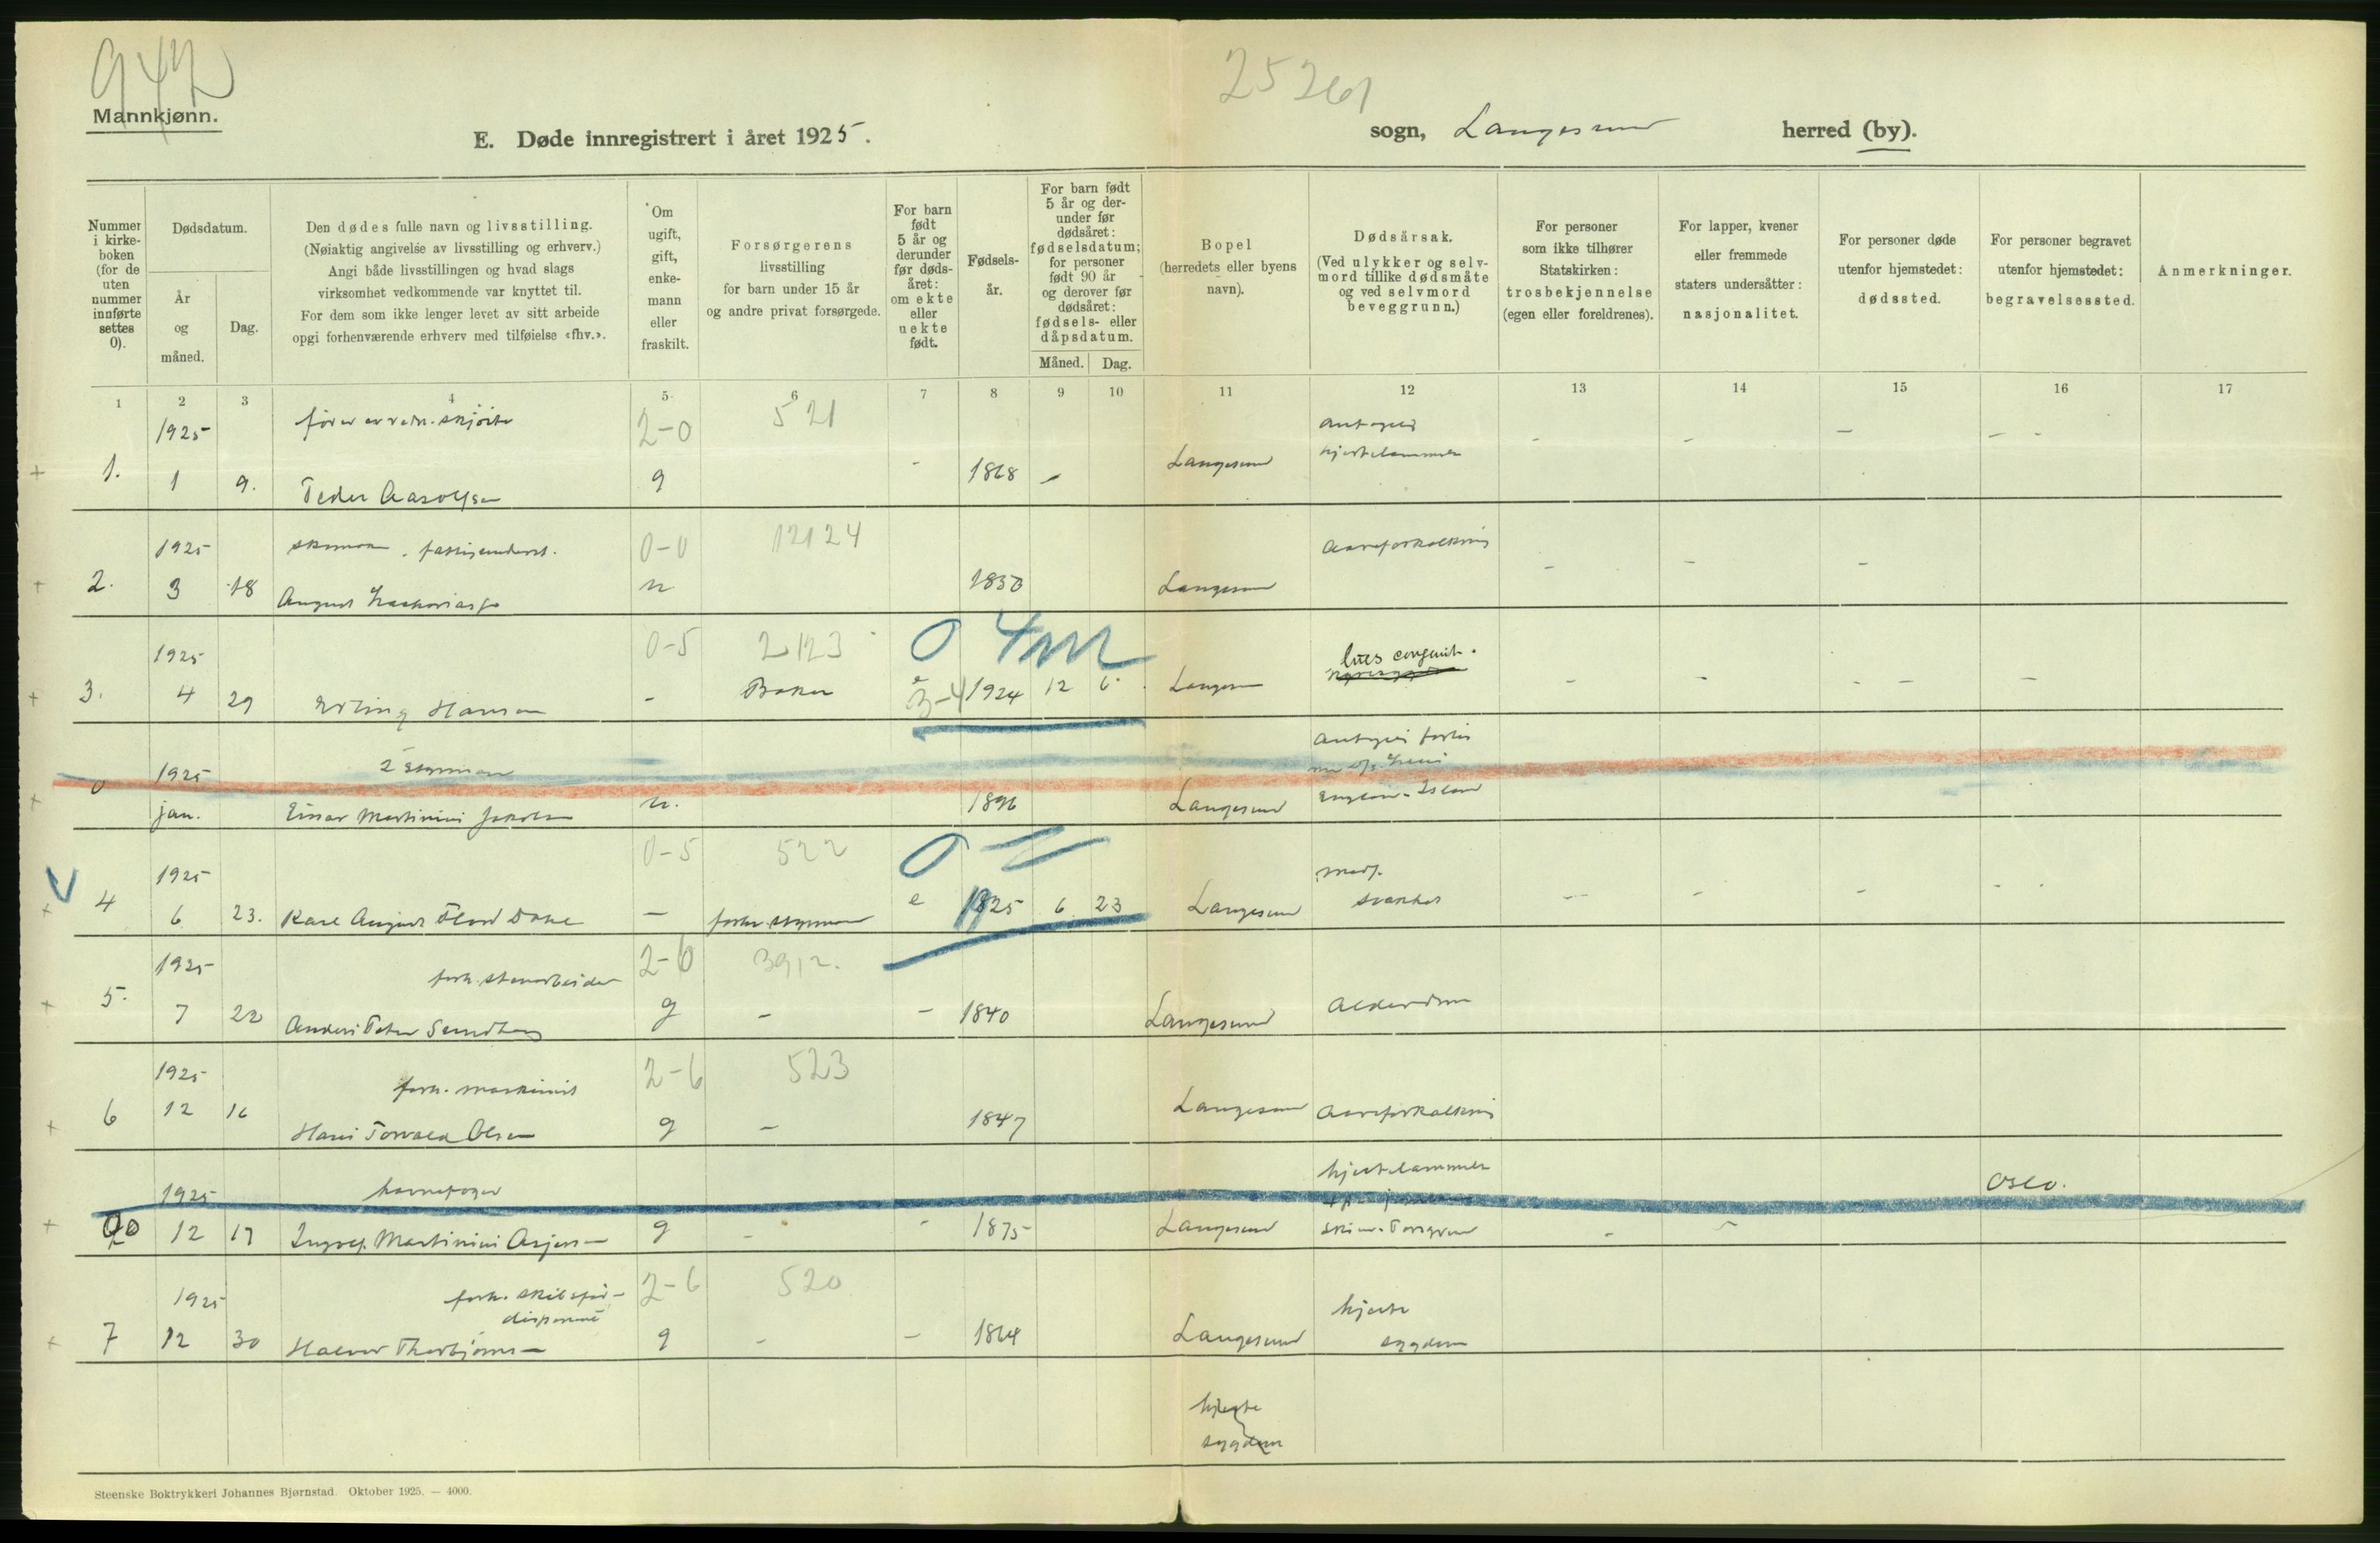 942
25261
Mannkjønn.
E. Døde innregistrert i året 1925.
sogn, Langesund herred (by).
Nummer i kirke- boken (for de uten nummer innførte settes 0).
Dødsdatum.
År og måned.
Dag.
Den dødes fulle navn og livsstilling.
(Nøiaktig angivelse av livsstilling og erhverv.)
Angi både livsstillingen og hvad slags
virksomhet vedkommende var knyttet til.
For dem som ikke lenger levet av sitt arbeide
opgi forhenværende erhverv med tilføielse «fhv.».
Om ugift, gift, enke- mann eller fraskilt.
Forsørgerens
livsstilling
for barn under 15 år
og andre privat forsørgede.
For barn født 5 år og derunder før døds- året: om ekte eller uekte født.
Fødsels- år.
For barn født 5 år og der- under før dødsåret: fødselsdatum; for personer født 90 år og derover før dødsåret: fødsels- eller dåpsdatum.
Måned.
Dag.
Bopel
(herredets eller byens
navn).
Dødsårsak.
(Ved ulykker og selv-
mord tillike dødsmåte
og ved selvmord
beveggrunn.)
For personer
som ikke tilhører
Statskirken:
trosbekjennelse
(egen eller foreldrenes).
For lapper, kvener
eller fremmede
staters undersåtter:
nasjonalitet.
For personer døde
utenfor hjemstedet:
dødssted.
For personer begravet
utenfor hjemstedet:
begravelsessted.
Anmerkninger.
1 2 3 4 5 6 7 8 9 10 11 12 13 14 15 16 17
1925 2-0 521 antagelig
1. 1 9. Peder Aasolfsen g - 1868 - Langesund hjertelammelse
1925 0-0 12124 Aareforkalkning
2. 3 18 August Zachariasen u 1850 Langesund
1925 0-5 2123 0 4m lues congenit.
3. 4 29 Erling Hansen - Baker e 3-4 1924 12 6 Langesund
1925 2 styrmann
0 jan. Einar Martinius Jakobsen u. 1896 Langesund England - Island
1925 0-5 522 0 medf.
4 6 23. Karl August - e 1925 6 23 Langesund svakhet
1925 forh. stenarbeider 2-6 3912.
5. 7 22 Anders Peter Sundberg g - - 1840 Langesund Alderdom
1925 forh. maskinist 2-6 523
6 12 16 Hans Torvald Olsen g - 1847 Langesund Aareforkalkning
1925 havnefoged hjertelammelse Oslo.
0 12 17 Martinius g - - 1875 Langesund
1925 forh. skibsfør- 2-6 520 hjerte
7 12 30 Halvor Thorbjørnsen g - - 1864 Langesund sygdom
hjerte
sygdom
Steenske Boktrykkeri Johannes Bjørnstad. Oktober 1925. — 4000.